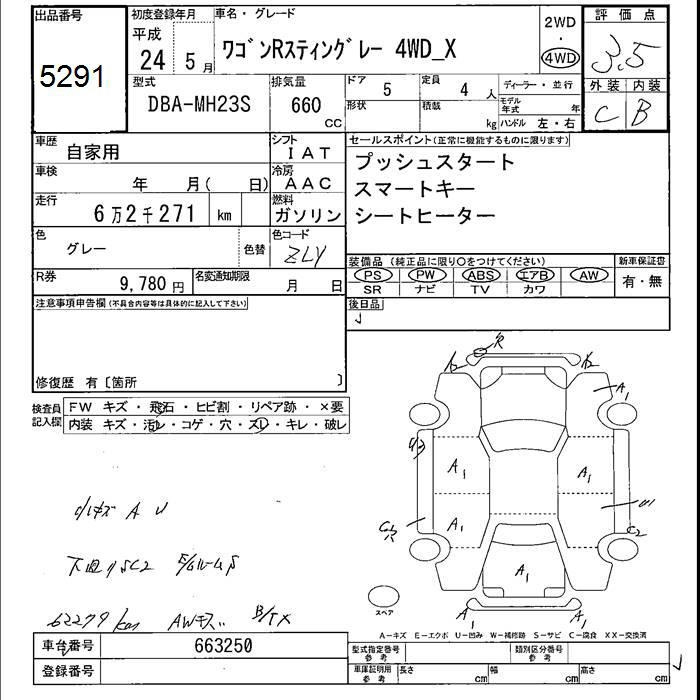 出品番号
5291
初度登録年月
平成
24 5月
車名・グレード
ワゴンRスティングレー 4WD_X
2WD
・
4WD
評価点
3.5
外装 内装
C B
型式
DBA-MH23S
排気量
660
CC
ドア 5
形状
定員 4 人
積載 kg
ディーラー・並行
モデル年式 年
ハンドル 左・右
車歴 自家用
シフト IAT
車検 年 月( 日)
冷房 AAC
走行 6万2千271 km
燃料 ガソリン
色 グレー 色替
色コード ZLY
R券 9,780円
名変通知期限 月 日
セールスポイント(正常に機能するものに限ります)
プッシュスタート
スマートキー
シートヒーター
装備品 (純正品に限り○をつけてください)
PS PW ABS エアB AW
SR ナビ TV カワ
新車保証書
有・無
後日品
注意事項申告欄(不具合内容等は具体的に記入して下さい)
修復歴 有〔箇所 〕
検査員記入欄
FW キズ・飛石・ヒビ割・リペア跡・×要
内装 キズ・汚レ・コゲ・穴・スレ・キレ・破レ
R
A2
A1
A1
A1
A1
C2
A1
A1
A1
スペア
小キズ A U
下廻りSC2
62279 km AWキズ B/TX
A-キズ E-エクボ U-凹み W-補修跡 S-サビ C-腐食 XX-交換済
車台番号 663250
登録番号
型式指定番号
参考
類別区分番号
参考
車庫証明用
参考
長さ cm
幅 cm
高さ cm